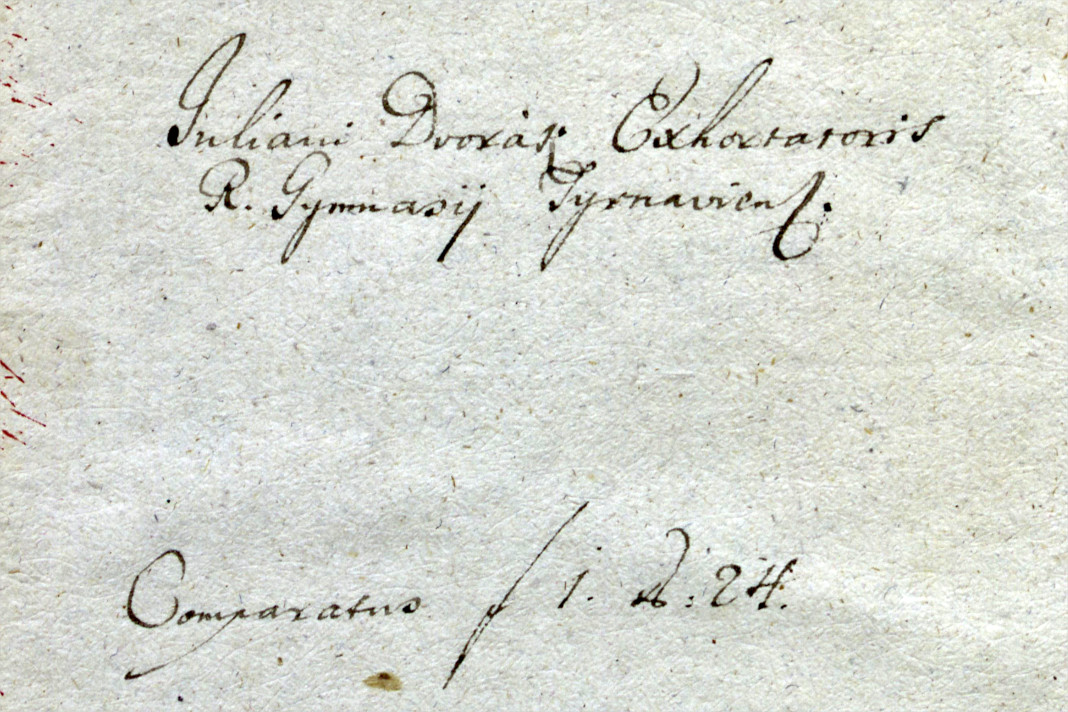 Juliani Dvorás: Exhortatoris
R. Gymnasij Tyrnaviens.
Comparatus f 1. d: 24.